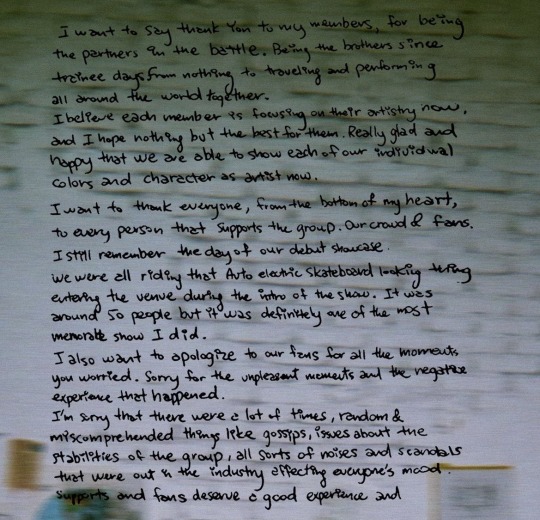 I want to say thank you to my members, for being
the partners in the battle. Being the brothers since
trainee days from nothing to traveling and performing
all around the world together.
I believe each member is focusing on their artistry now,
and I hope nothing but the best for them. Really glad and
happy that we are able to show each of our individual
colors and character as artist now.
I want to thank everyone, from the bottom of my heart,
to every person that supports the group. Our crowd & fans.
I still remember the day of our debut showcase.
we were all riding that Auto electric skateboard looking thing
entering the venue during the intro of the show. It was
around 50 people but it was definitely one of the most
memorable show I did.
I also want to apologize to our fans for all the moments
you worried. Sorry for the unpleasant moments and the negative
experience that happened.
I'm sorry that there were a lot of times, random &
miscomprehended things like gossips, issues about the
stabilities of the group, all sorts of noises and scandals
that were out in the industry affecting everyone's mood.
Supports and fans deserve a good experience and